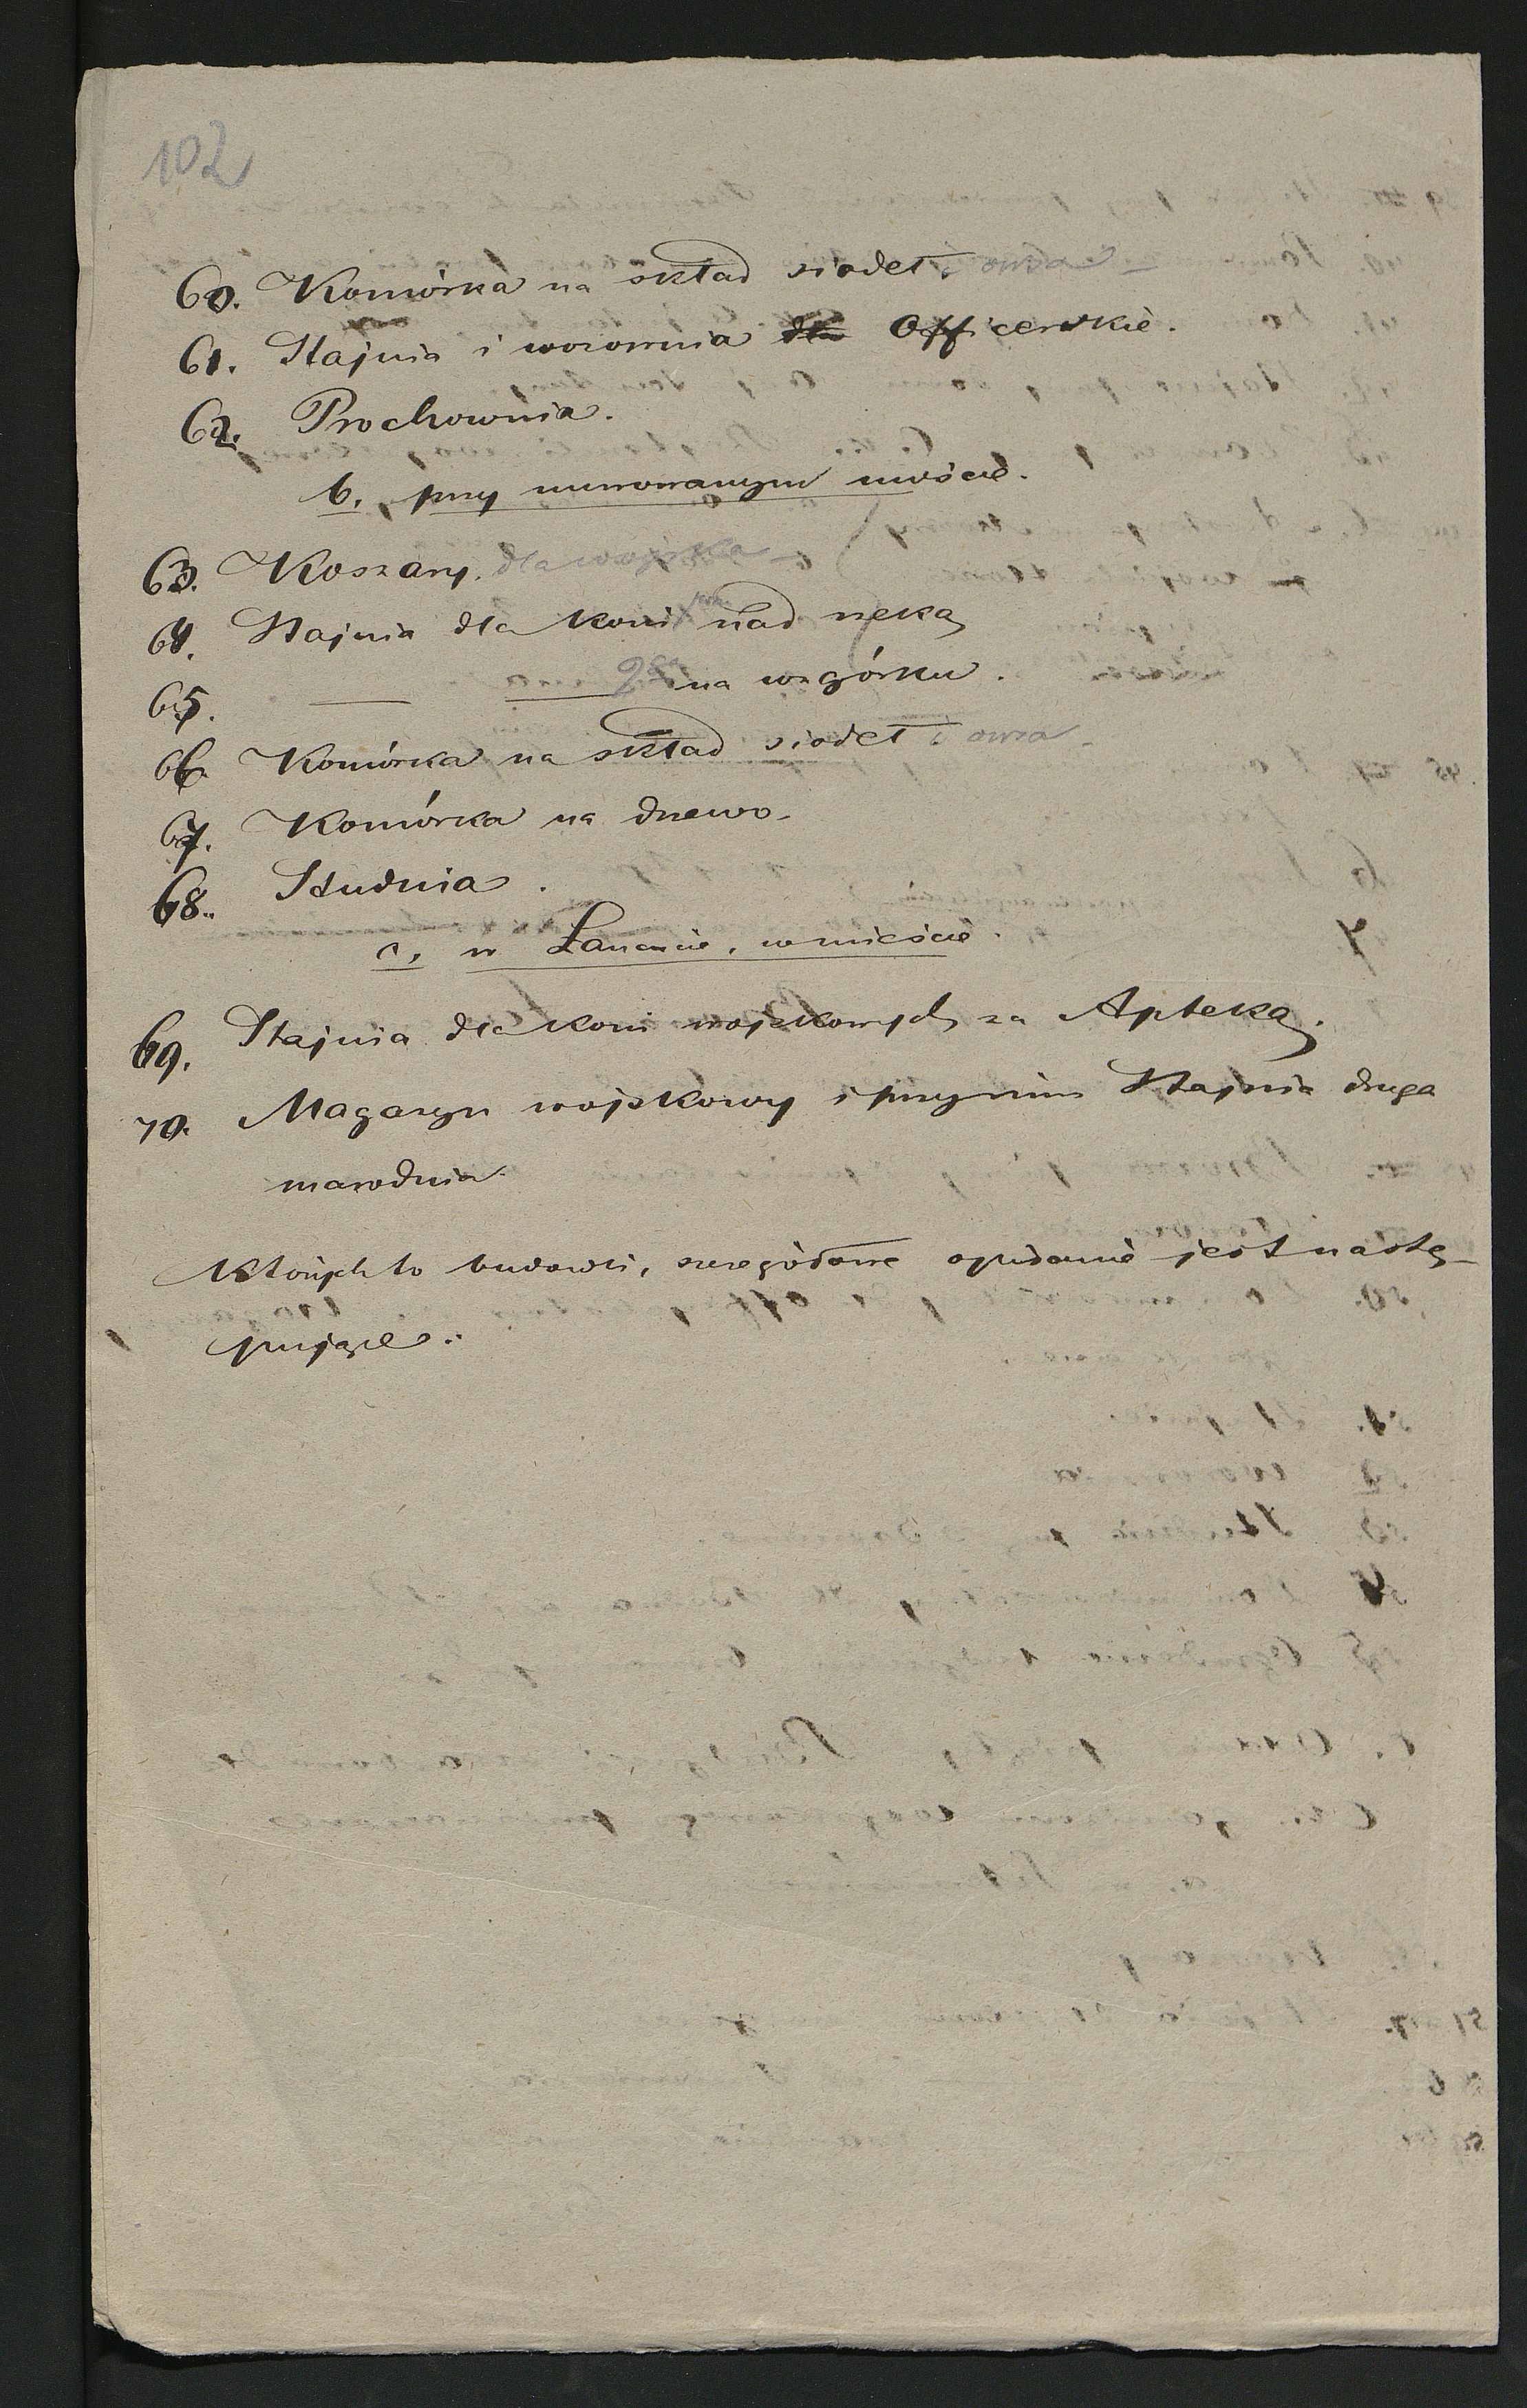 102
60. Komórka na skład siodeł i owsa
61. Stajnia i wozownia dla Officerskie.
62. Prochownia.
b, przy murowanym moście.
63. Koszary. dla wojska
64. Stajnia dla koni nad rzeką
65. — — 2ga na wzgórku.
66 Komórka na skład siodeł i owsa.
67. Komórka na drzewo.
68. Studnia.
c, w Łańcucie, w mieście.
69. Stajnia dla koni wojskowych za Apteką.
70. Magazyn wojskowy i przy nim Stajnia druga
marodnia
Których to budowli, szczegółowe opisanie jest nastę-
pujące: